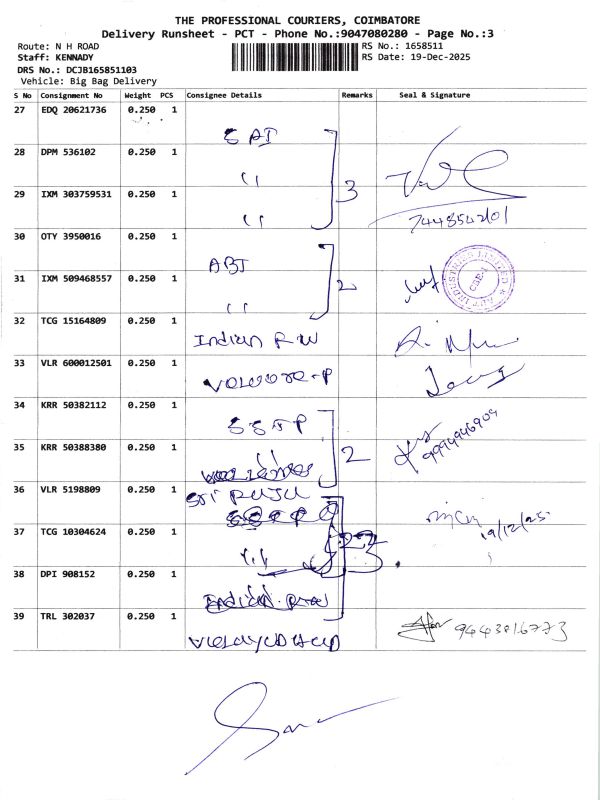 THE PROFESSIONAL COURIERS, COIMBATORE
Delivery Runsheet - PCT - Phone No.:9047080280 - Page No.:3
Route: N H ROAD RS No.: 1658511
Staff: KENNADY RS Date: 19-Dec-2025
DRS No.: DCJB165851103
Vehicle: Big Bag Delivery
S No Consignment No Weight PCS Consignee Details Remarks Seal & Signature
27 EDQ 20621736 0.250 1 SAI
28 DPM 536102 0.250 1 " 3
29 IXM 303759531 0.250 1 " 7448542101
30 OTY 3950016 0.250 1 ABI
31 IXM 509468557 0.250 1 " 2
32 TCG 15164809 0.250 1 Indian
33 VLR 600012501 0.250 1
34 KRR 50382112 0.250 1 SSTP
35 KRR 50388380 0.250 1 " 2 9994946909
36 VLR 5198809 0.250 1 Sri
37 TCG 10304624 0.250 1 " 3 19/12/25
38 DPI 908152 0.250 1
39 TRL 302037 0.250 1 9443816773